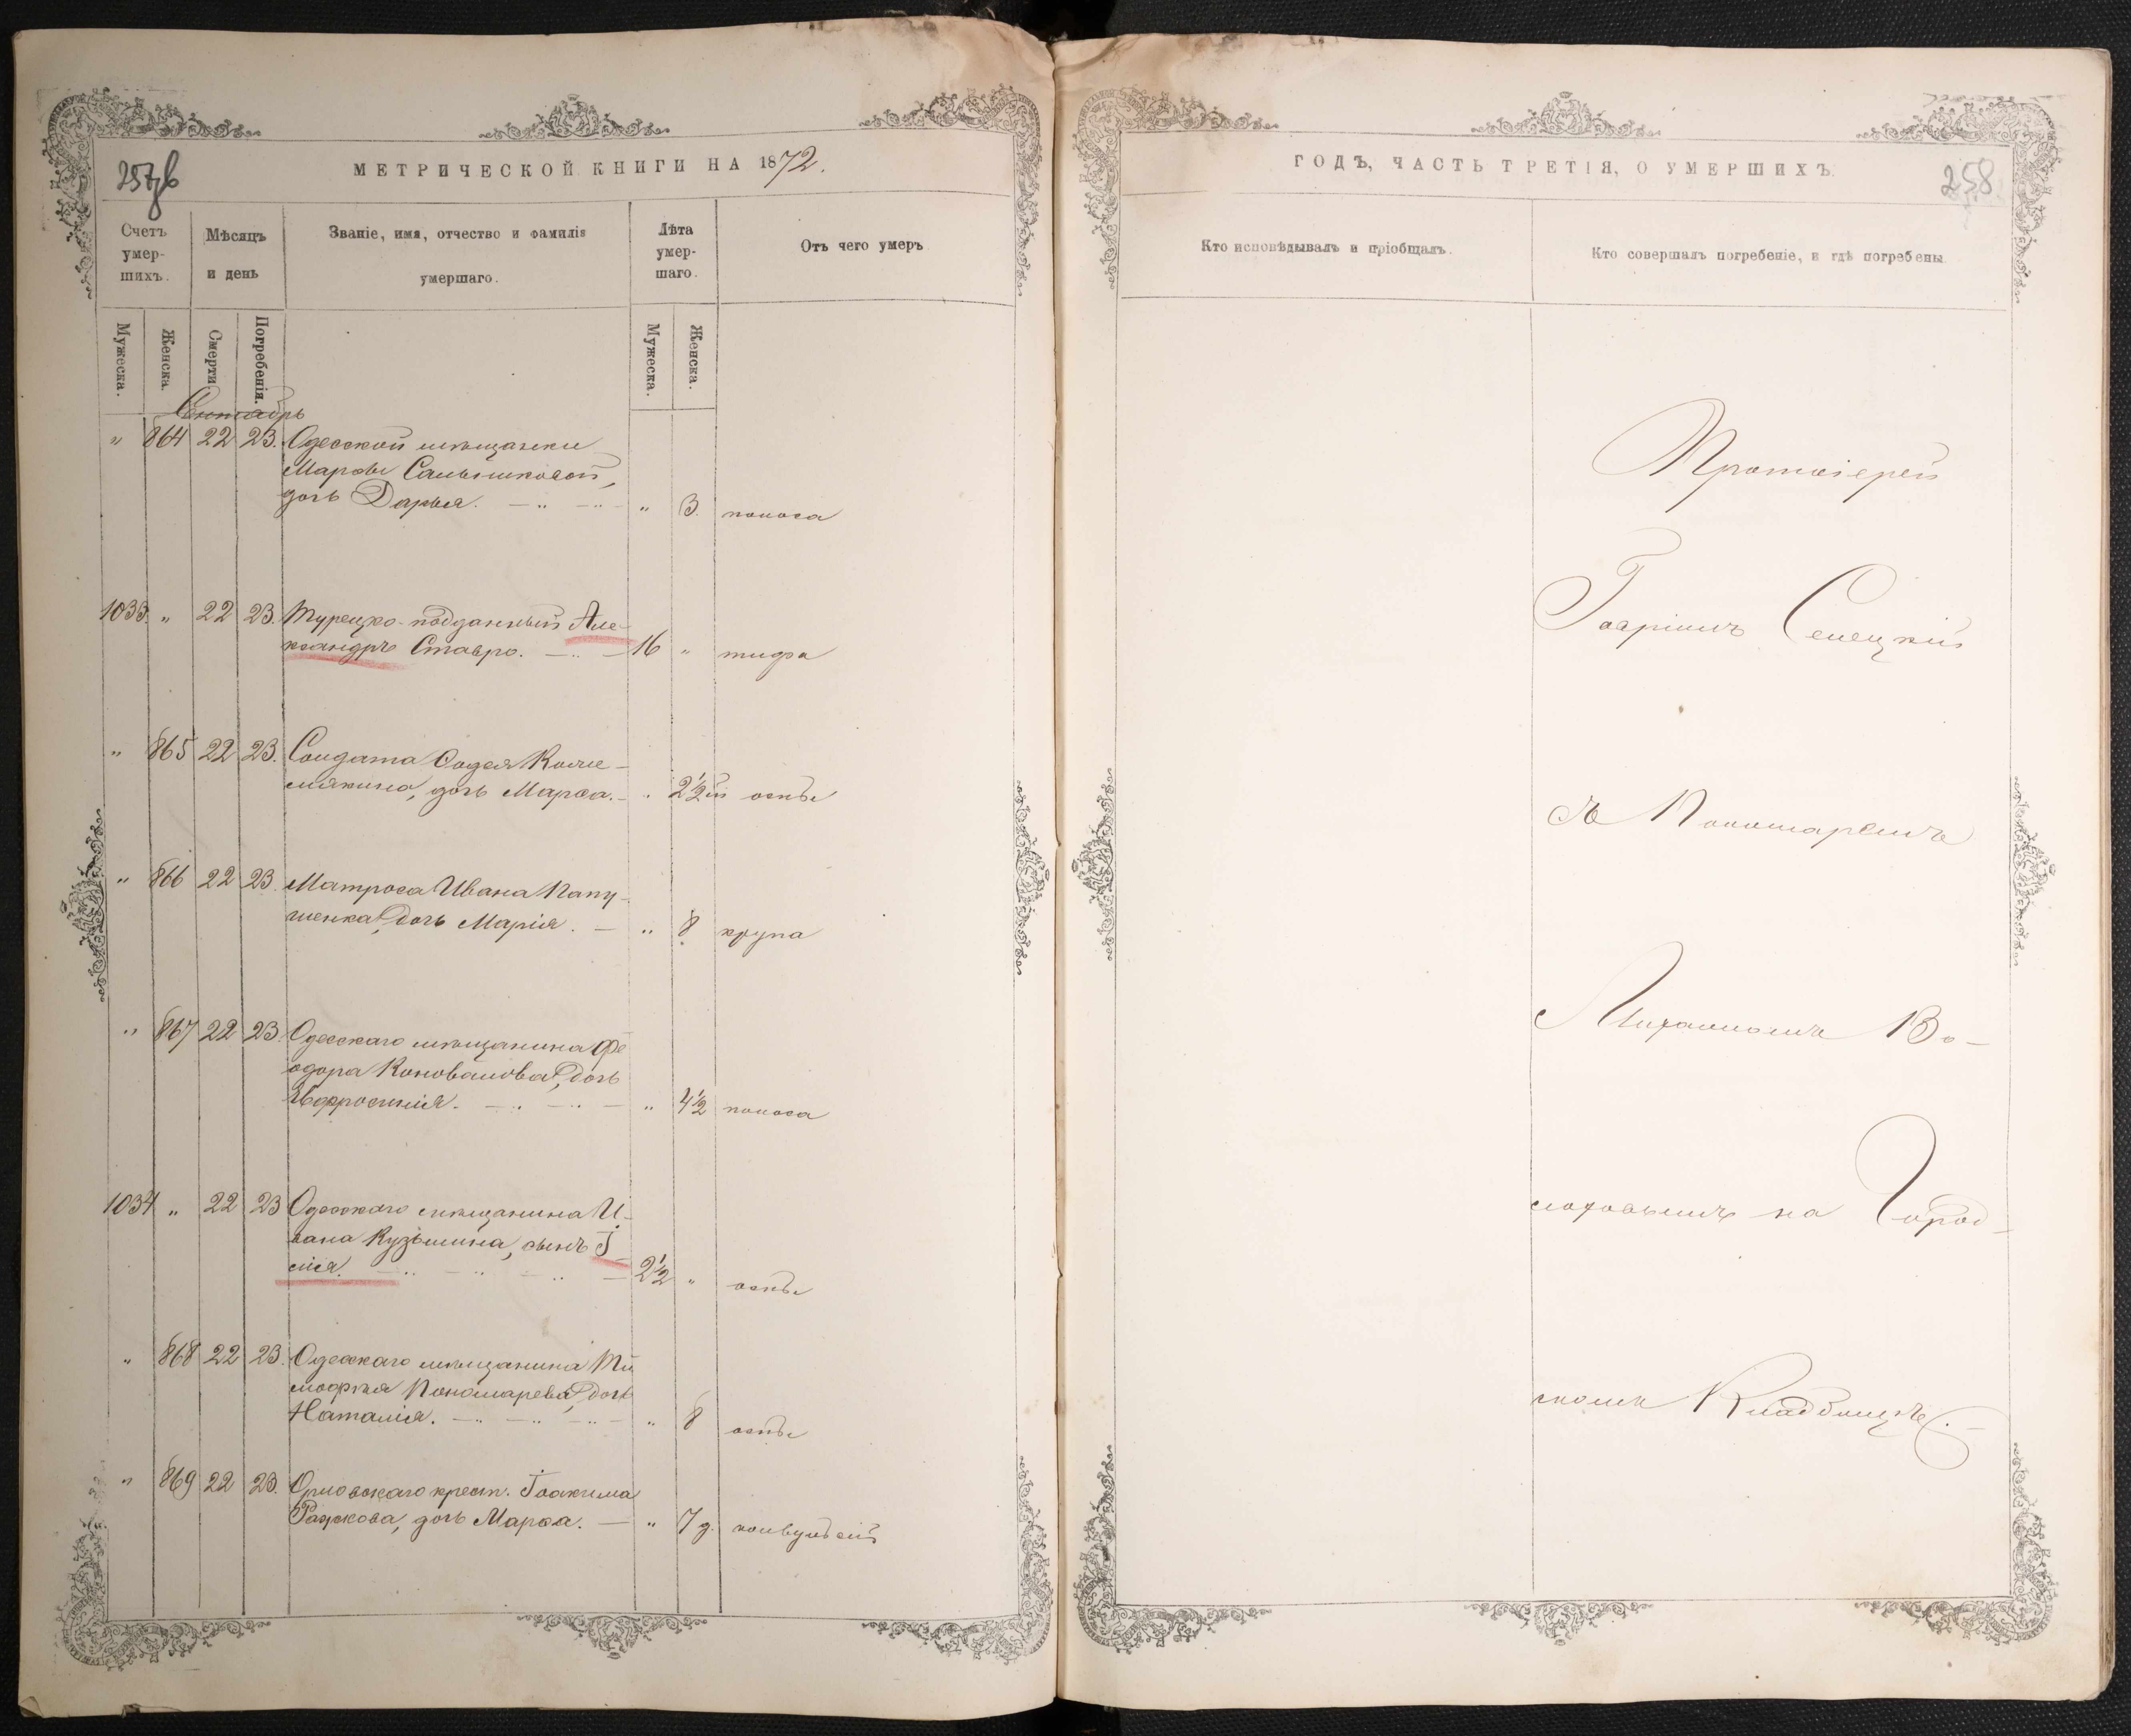 257об
МЕТРИЧЕСКОЙ КНИГИ НА 1872.
Счетъ умер-шихъ.
Мѣсяцъ и день
Званіе, имя, отчество и фамилія умершаго.
Лѣта умер-шаго.
Отъ чего умеръ
Мужеска.
Женска.
Смерти.
Погребенія.
Мужеска.
Женска.
Сентябрь
" 864 22 23. Одесской мѣщанки
Марѳы Сальниковой,
дочь Дарья. " 3. поноса
1033. " 22 23. Турецко-подданный Але-
ксандръ Ставро. 16 " тифа
" 865 22 23. Солдата
мякина, дочь Марѳа. " 2½ оспы
" 866 22 23. Матроса Ивана Папу-
шенка, дочь Марія. " 8 крупа
" 867 22 23. Одесскаго мѣщанина Ѳе
одора Коновалова, дочь
Евфросинія. " 4½ поноса
1034 " 22 23 Одесскаго мѣщанина И-
вана Кузьмина, сынъ І
лія. 2½ " оспы
" 868 22 23. Одесскаго мѣщанина Ти
моѳея Пономарева, дочь
Наталія. " 8 оспы
" 869 22 23. Орловскаго крест. Іоакима
дочь Марѳа. " 7 д. конвульсій
258
ГОДЪ, ЧАСТЬ ТРЕТІЯ, О УМЕРШИХЪ.
Кто исповѣдывалъ и пріобщалъ.
Кто совершалъ погребеніе, и гдѣ погребены.
Протоіерей
Гавріилъ Селецкій
съ Пономаремъ
Михаиломъ Во-
лоховымъ на Город-
скомъ Кладбищѣ.